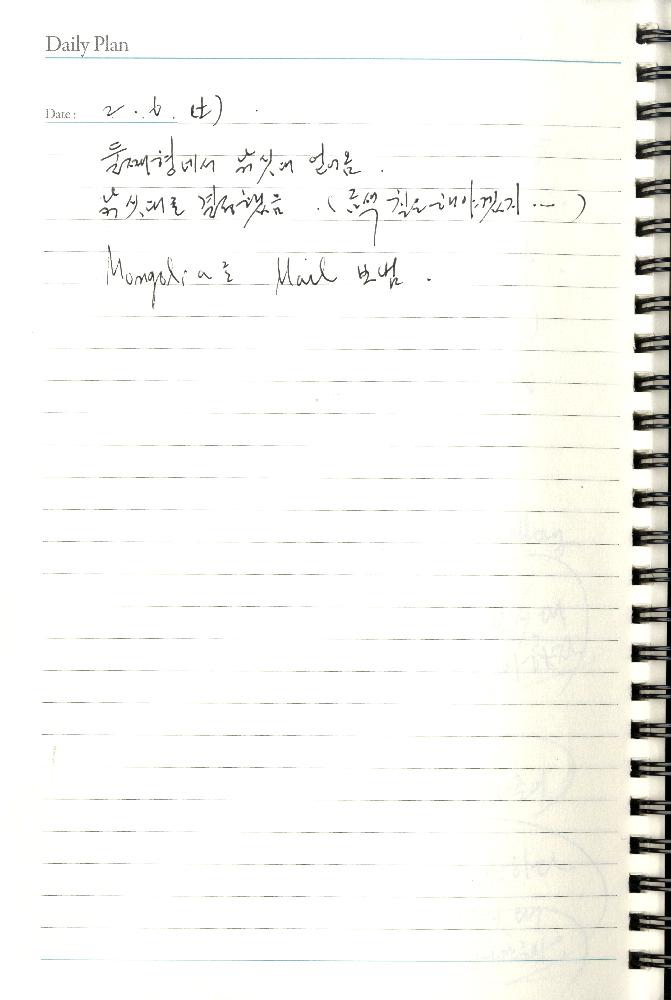 Daily Plan
Date: 2. 6. (土)
둘째형네서 낚싯대 얻어옴.
낚싯대로 결정했음. ( 칠은 해야겠지 ... )
Mongolia로 Mail 보냄.